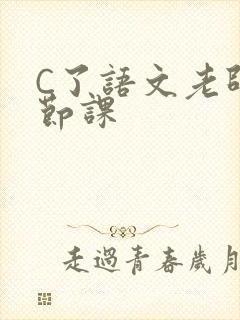 C了語文老師
節課
走過青春歲月